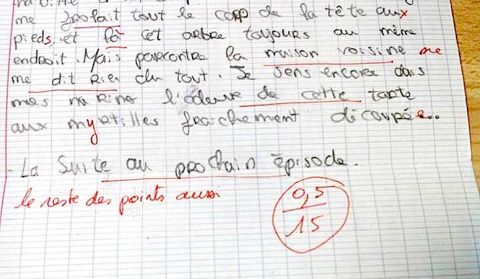 me frolait tout le corp de la tête aux
pieds, et là cet arbre toujours au même
endroit. Mais parcontre la maison voisine ne
me dit rien du tout. Je sens encore dans
mes narine l'odeure de cette tarte
aux myrtilles fraichement découpée..
- La suite au prochain épisode.
le reste des points aussi
0,5
15